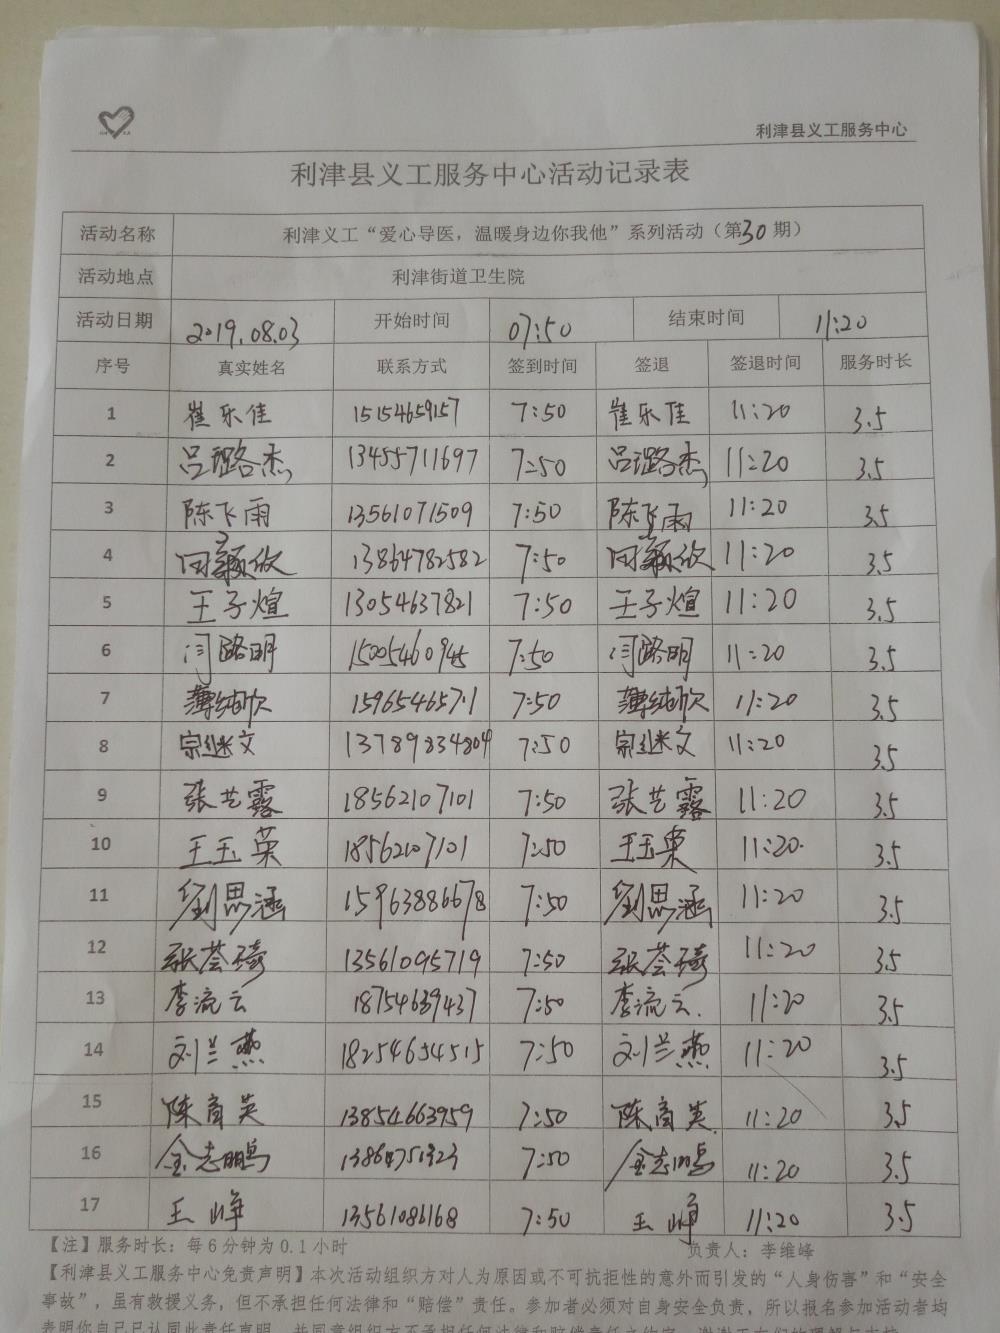 利津县义工服务中心
利津县义工服务中心活动记录表
活动名称 利津义工“爱心导医，温暖身边你我他”系列活动（第30期）
活动地点 利津街道卫生院
活动日期 2019.08.03 开始时间 07:50 结束时间 11:20
序号 真实姓名 联系方式 签到时间 签退 签退时间 服务时长
1 崔乐佳 15154659157 7:50 崔乐佳 11:20 3.5
2 吕璐杰 13455711697 7:50 吕璐杰 11:20 3.5
3 陈飞雨 13561071509 7:50 陈飞雨 11:20 3.5
4 田颖欣 13864782582 7:50 田颖欣 11:20 3.5
5 王子煊 13054637821 7:50 王子煊 11:20 3.5
6 闫路明 15005460945 7:50 闫路明 11:20 3.5
7 薄纯欣 7:50 薄纯欣 11:20 3.5
8 宗继文 13789834804 7:50 宗继文 11:20 3.5
9 张艺露 18562107101 7:50 张艺露 11:20 3.5
10 王玉荣 18562107101 7:50 王玉荣 11:20 3.5
11 刘思涵 15963886678 7:50 刘思涵 11:20 3.5
12 张荟琦 13561095719 7:50 张荟琦 11:20 3.5
13 李流云 18754639437 7:50 李流云 11:20 3.5
14 刘兰燕 18254654515 7:50 刘兰燕 11:20 3.5
15 陈育英 13854663959 7:50 陈育英 11:20 3.5
16 金志鹏 7:50 金志鹏 11:20 3.5
17 王峥 13561086168 7:50 王峥 11:20 3.5
【注】服务时长：每6分钟为0.1小时 负责人：李维峰
【利津县义工服务中心免责声明】本次活动组织方对人为原因或不可抗拒性的意外而引发的“人身伤害”和“安全
事故”，虽有救援义务，但不承担任何法律和“赔偿”责任。参加者必须对自身安全负责，所以报名参加活动者均
表明你自己已认同此责任声明，并同意组织方不承担任何法律和赔偿责任之约定，谢谢